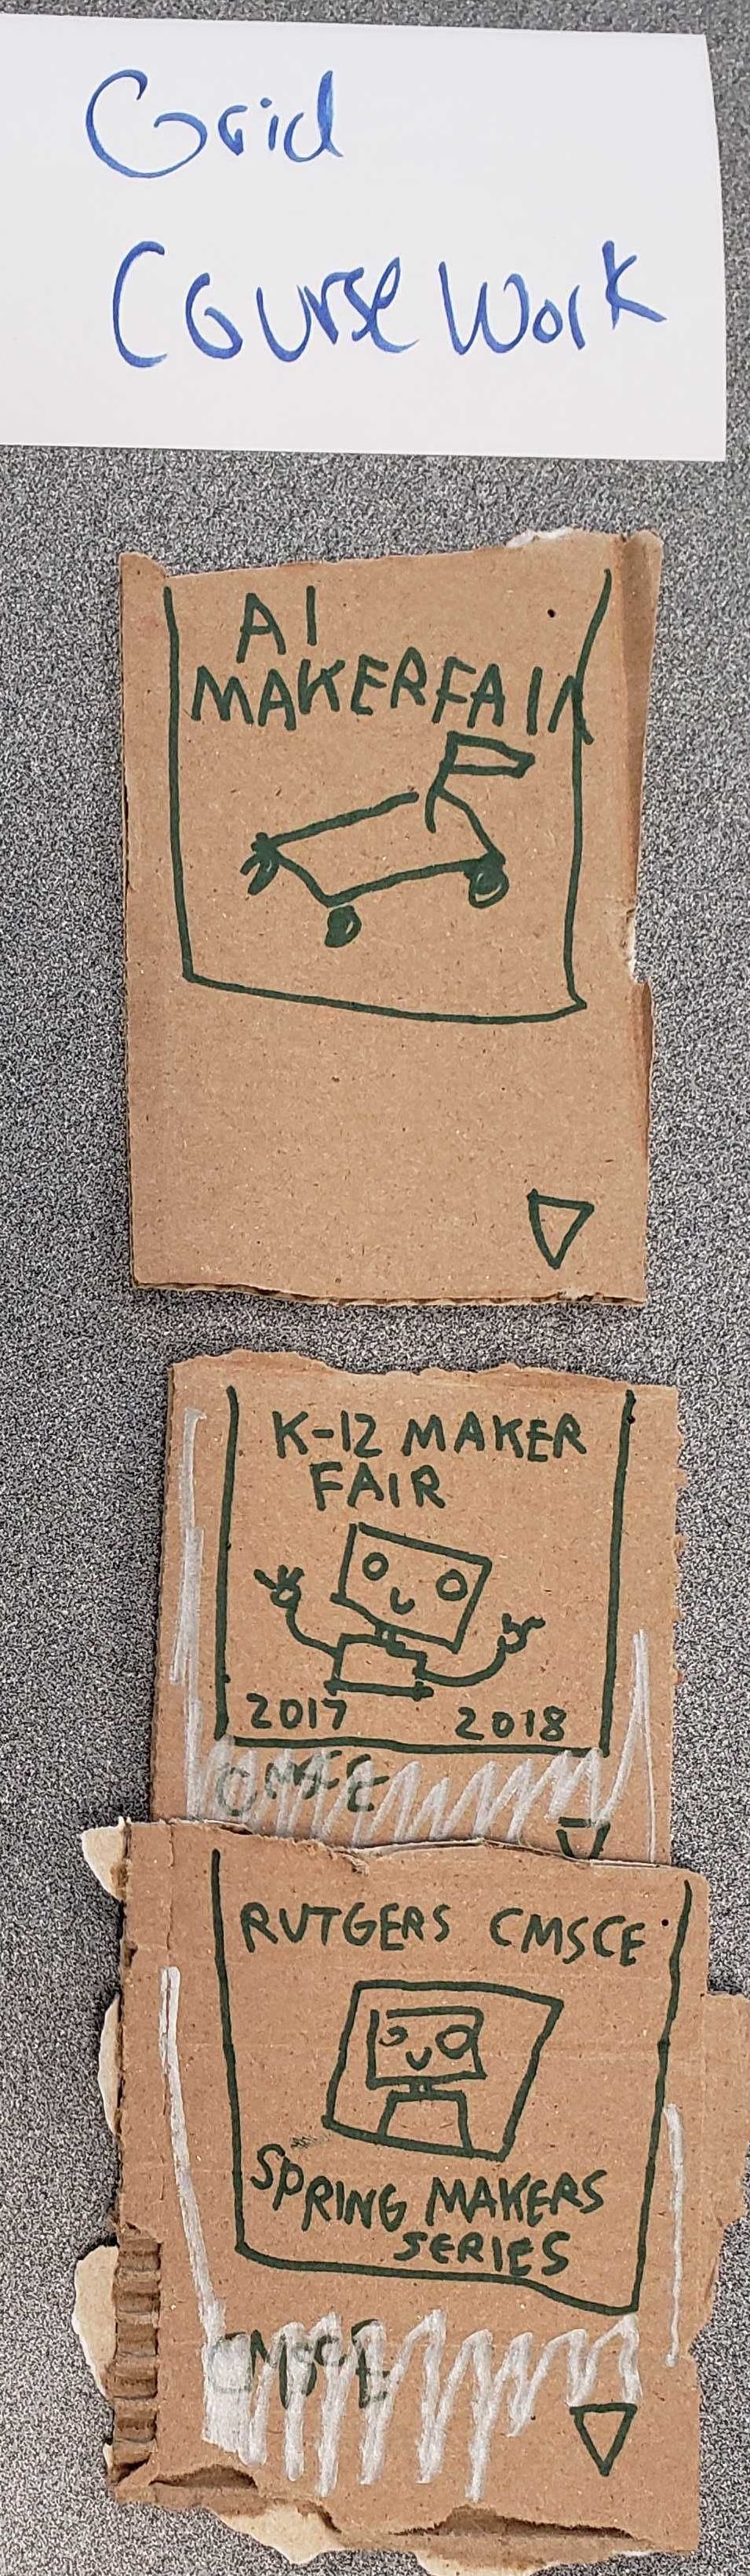 Grid
Course Work
AI
MAKERFAIR
K-12 MAKER
FAIR
2017 2018
CMSCE
RUTGERS CMSCE
SPRING MAKERS
SERIES
CMSCE